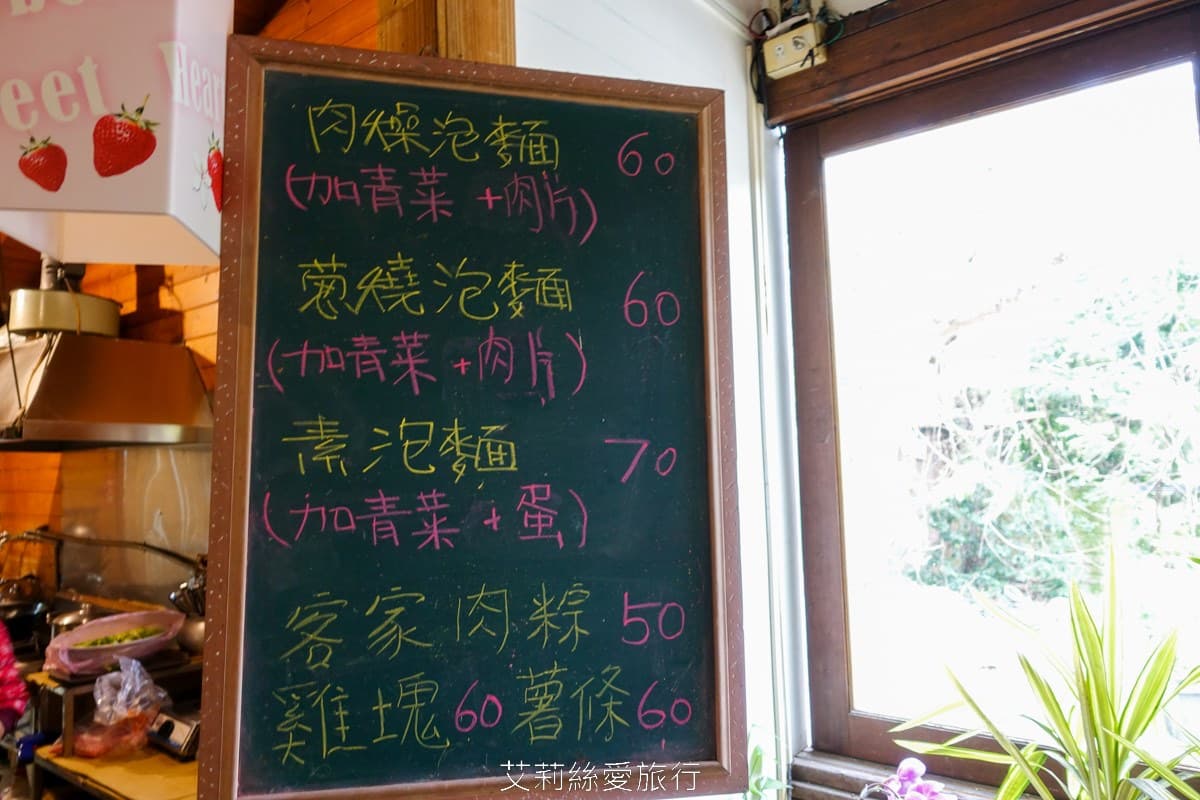 eet
Hear
肉燥泡麵 60
(加青菜 +肉片)
蔥燒泡麵 60
(加青菜 +肉片)
素泡麵 70
(加青菜 + 蛋)
客家肉粽 50
雞塊60 薯條60
艾莉絲愛旅行